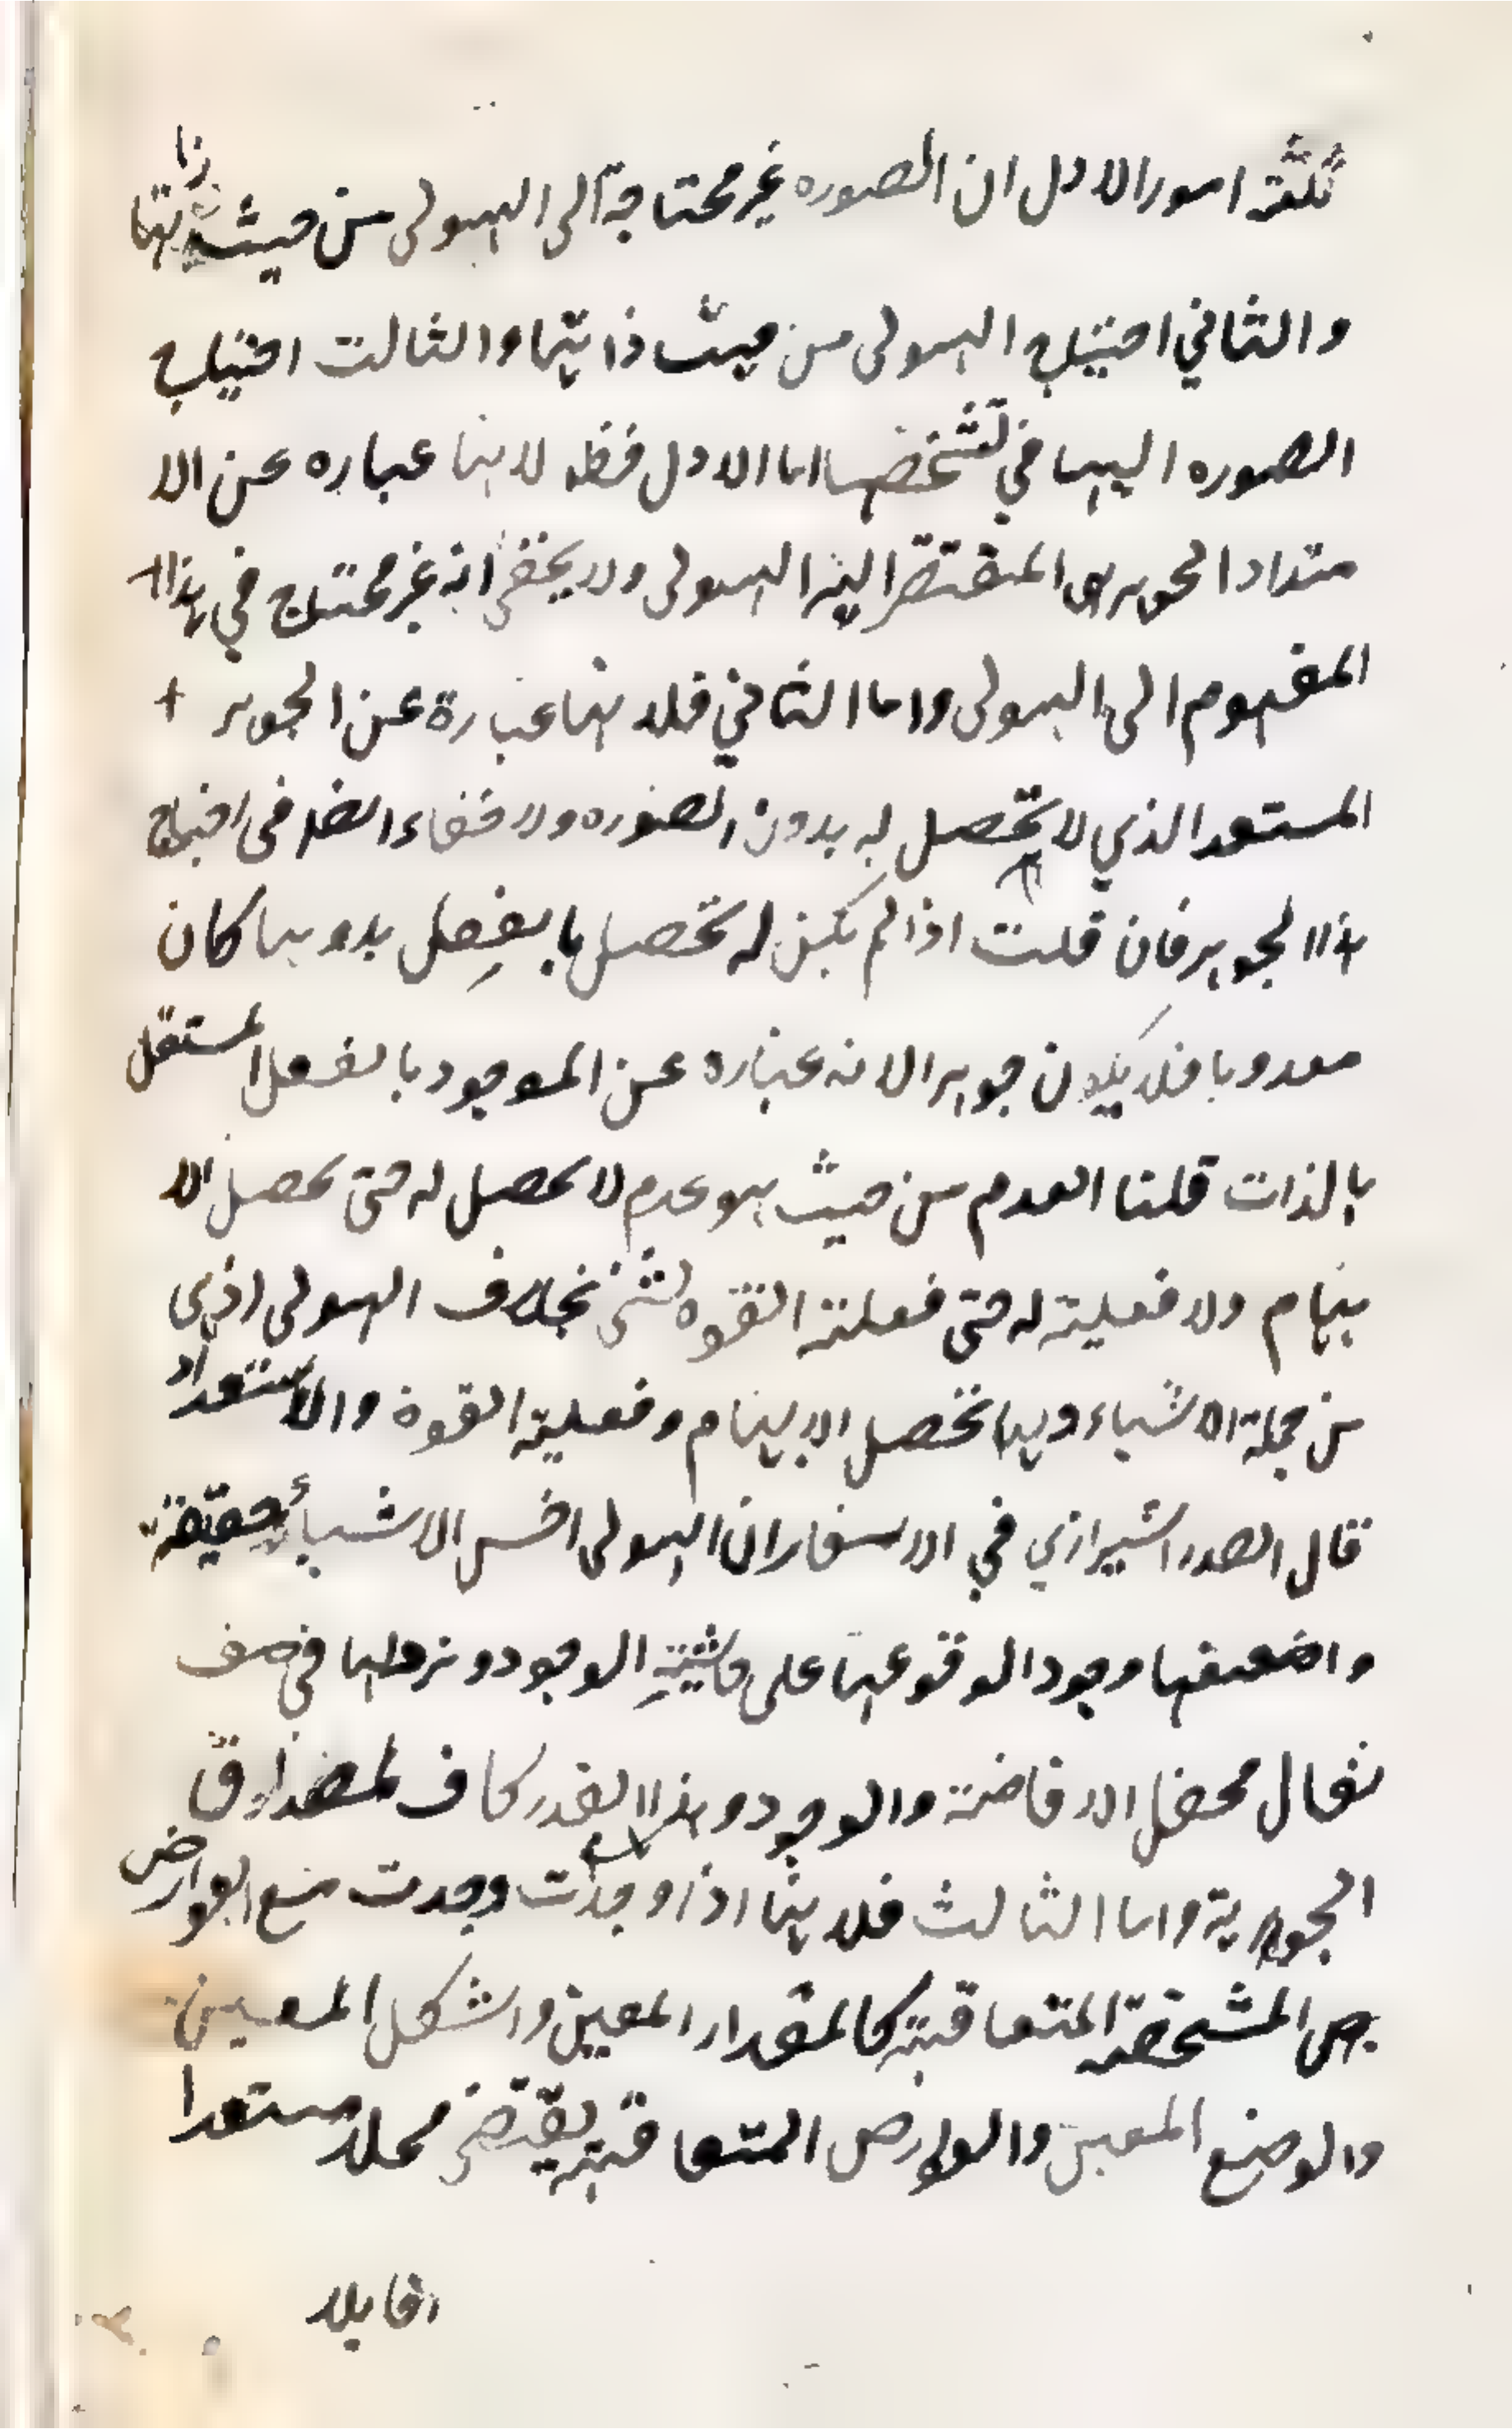 ثلثة امور الاول ان الصوره غير محتاجة الى الهيولى من حيث ذاتها
والثاني احتياج الهيولى من حيث ذاتها والثالث احتياج
الصوره اليها في تشخصها اما الاول فظ لانها عباره عن الا
متداد الجوهرى المفتقر اليه الهيولى ولا يخفى انه غير محتاج في هذا
المفهوم الى الهيولى واما الثاني فلانها عبارة عن الجوهر
المستعد الذي لا تحصل له بدون الصوره ولا خفاء ايضا فى احتياج
هذا الجوهر فان قلت اذا لم يكن له تحصل بالفعل بدونها كان
معدوما فلا يكون جوهرا لانه عباره عن الموجود بالفعل المستقل
بالذات قلنا العدم من حيث هو عدم لا تحصل له حتى تحصل الا
بهام ولا فعلية له حتى فعلية القوه لشئ بخلاف الهيولى اذ هى
من جملة الاشياء ولها تحصل الابهام وفعلية القوة والاستعداد
قال الصدر الشيرازي في الاسفار ان الهيولى اخس الاشياء حقيقة
واضعفها وجودا لوقوعها على حاشية الوجود ونزولها في صف
نعال محفل الافاضة والوجود وهذا القدر كاف لمصداق
الجوهرية واما الثالث فلانها اذا وجدت وجدت مع العوارض
هى المشخصة المتعاقبة كالمقدار المعين والشكل المعين
والوضع المعين والعوارض المتعاقبة يقتضي محلا مستعدا
قابلا